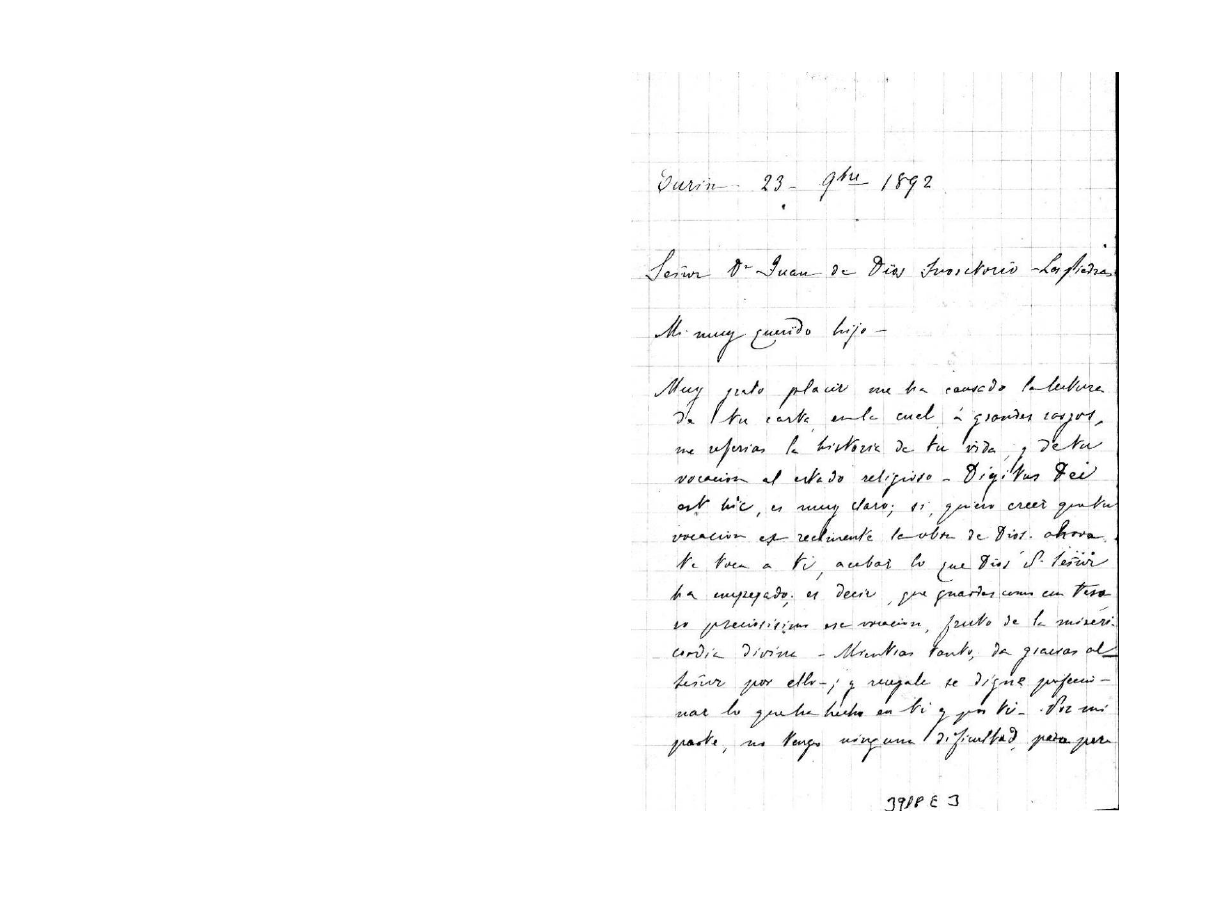 Turin 23 - 9bre 1892
Señor Dn Juan de Dios - Las Piedras
Mi muy querido hijo -
Muy grato placer me ha causado la lectura
de tu carta en la cual á grandes rasgos,
me referias la historia de tu vida y de tu
vocacion al estado religioso - Digitus Dei
est hic, es muy claro; si, quiero creer que tu
vocacion es realmente la obra de Dios. ahora
te toca a ti, acabar lo que Dios N. Señor
ha empezado; es decir, que guardes como un teso
ro preciosisimo esa vocacion, fruto de la miseri-
cordia divina - Mientras tanto, da gracias al
Señor por ello -; y ruegale se digne perfeccio-
nar lo que ha hecho en ti y por ti - Por mi
parte, no tengo ninguna dificultad, para
39 E 3